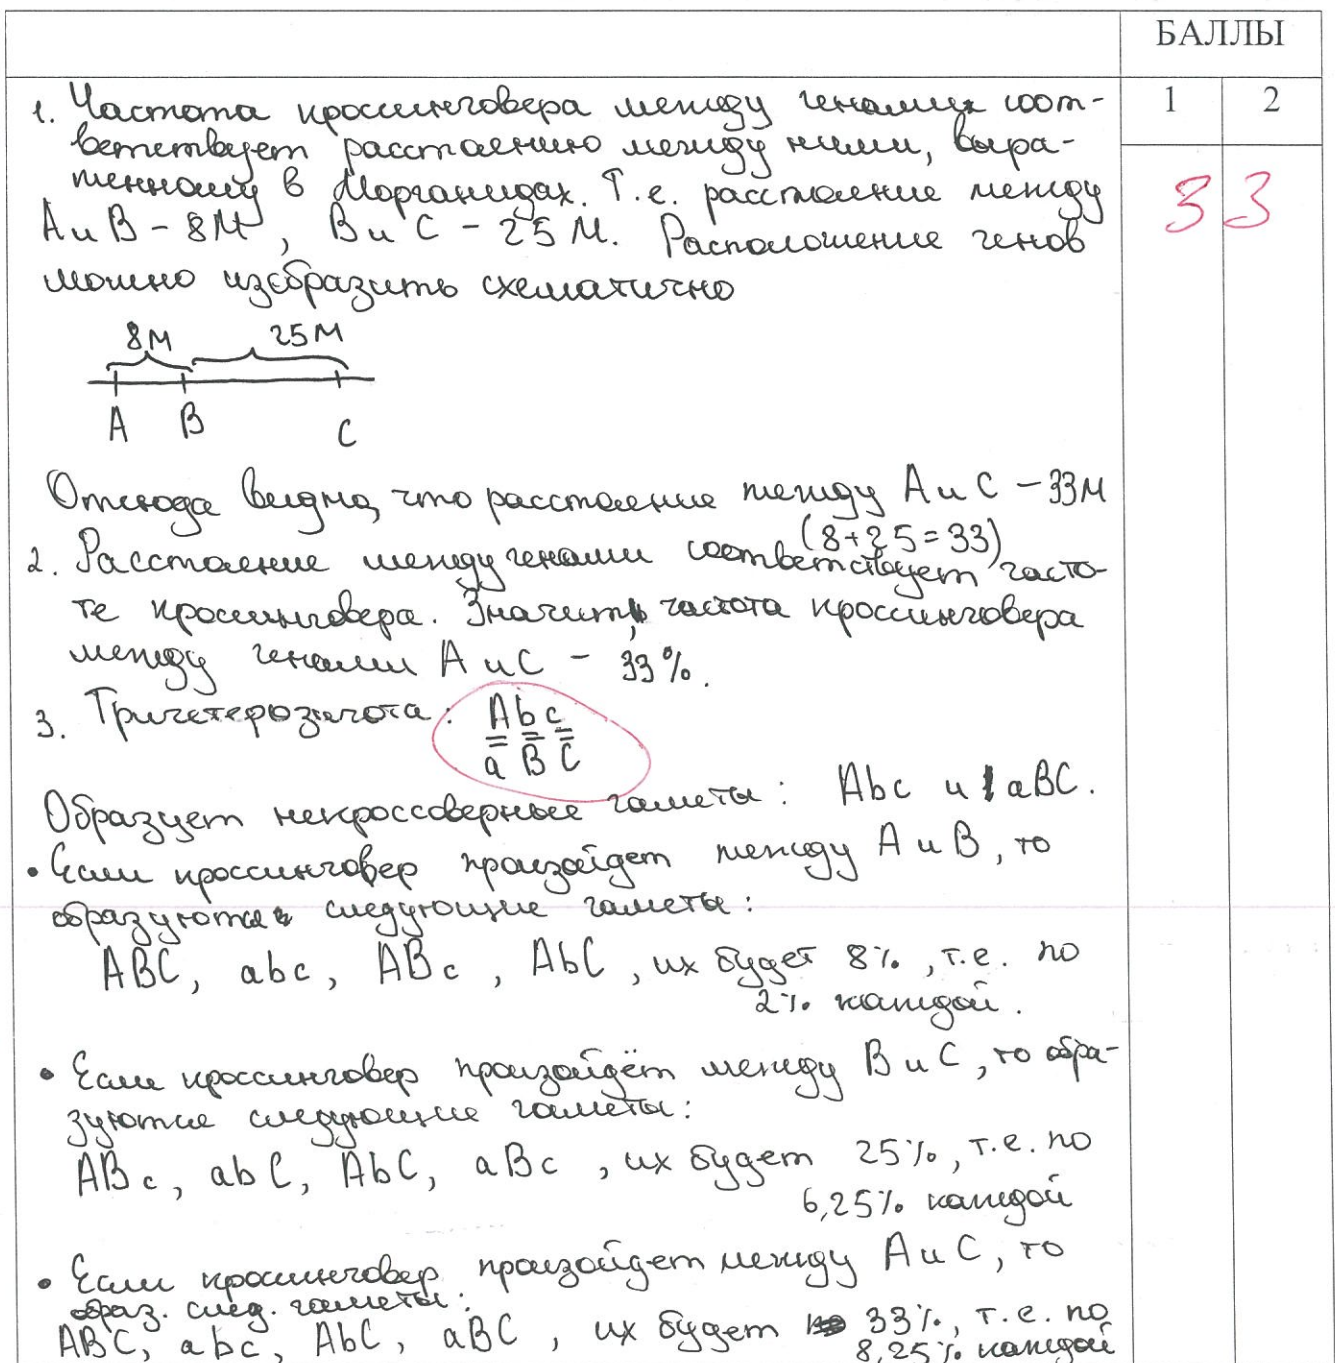 БАЛЛЫ
1 2
3 3
1. Частота кроссинговера между генами соот-
ветствует расстоянию между ними, выра-
женному в Морганидах. Т.е. расстояние между
А и В - 8М, В и С - 25 М. Расположение генов
можно изобразить схематично
8М 25М
А В С
Отсюда видно, что расстояние между А и С - 33М
(8+25=33)
2. Расстояние между генами соответствует часто-
те кроссинговера. Значит, частота кроссинговера
между генами А и С - 33%.
3. Тригетерозигота: Abc
aBC
Образует некроссоверные гаметы: Abc и aBC.
• Если кроссинговер произойдет между А и В, то
образуются следующие гаметы:
ABC, abc, ABc, AbC, их будет 8%, т.е. по
2% каждой.
• Если кроссинговер произойдёт между В и С, то обра-
зуются следующие гаметы:
ABc, abC, AbC, aBc, их будет 25%, т.е. по
6,25% каждой
• Если кроссинговер произойдет между А и С, то
образ. след. гаметы:
ABC, abc, AbC, aBC, их будет 33%, т.е. по
8,25% каждой